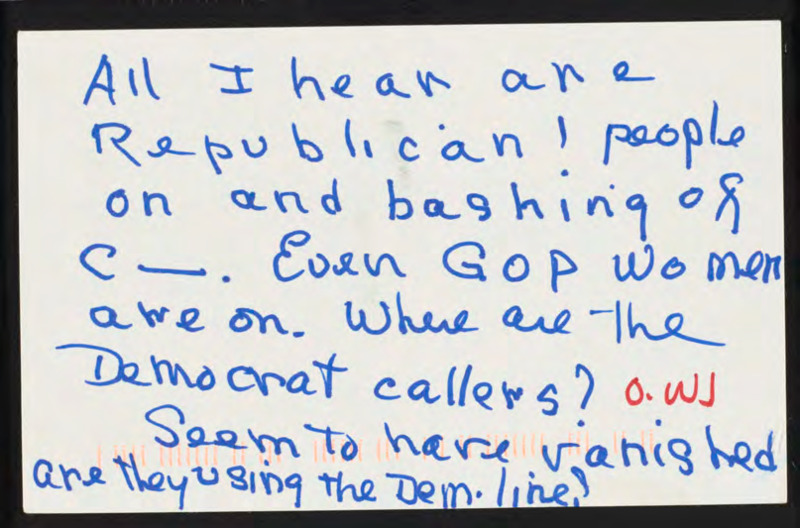 All I hear are
Republican! people
on and bashing of
C —. Even GOP Women
are on. Where are the
Democrat callers? O. WJ
Seem to have vanished
are they using the Dem. line?